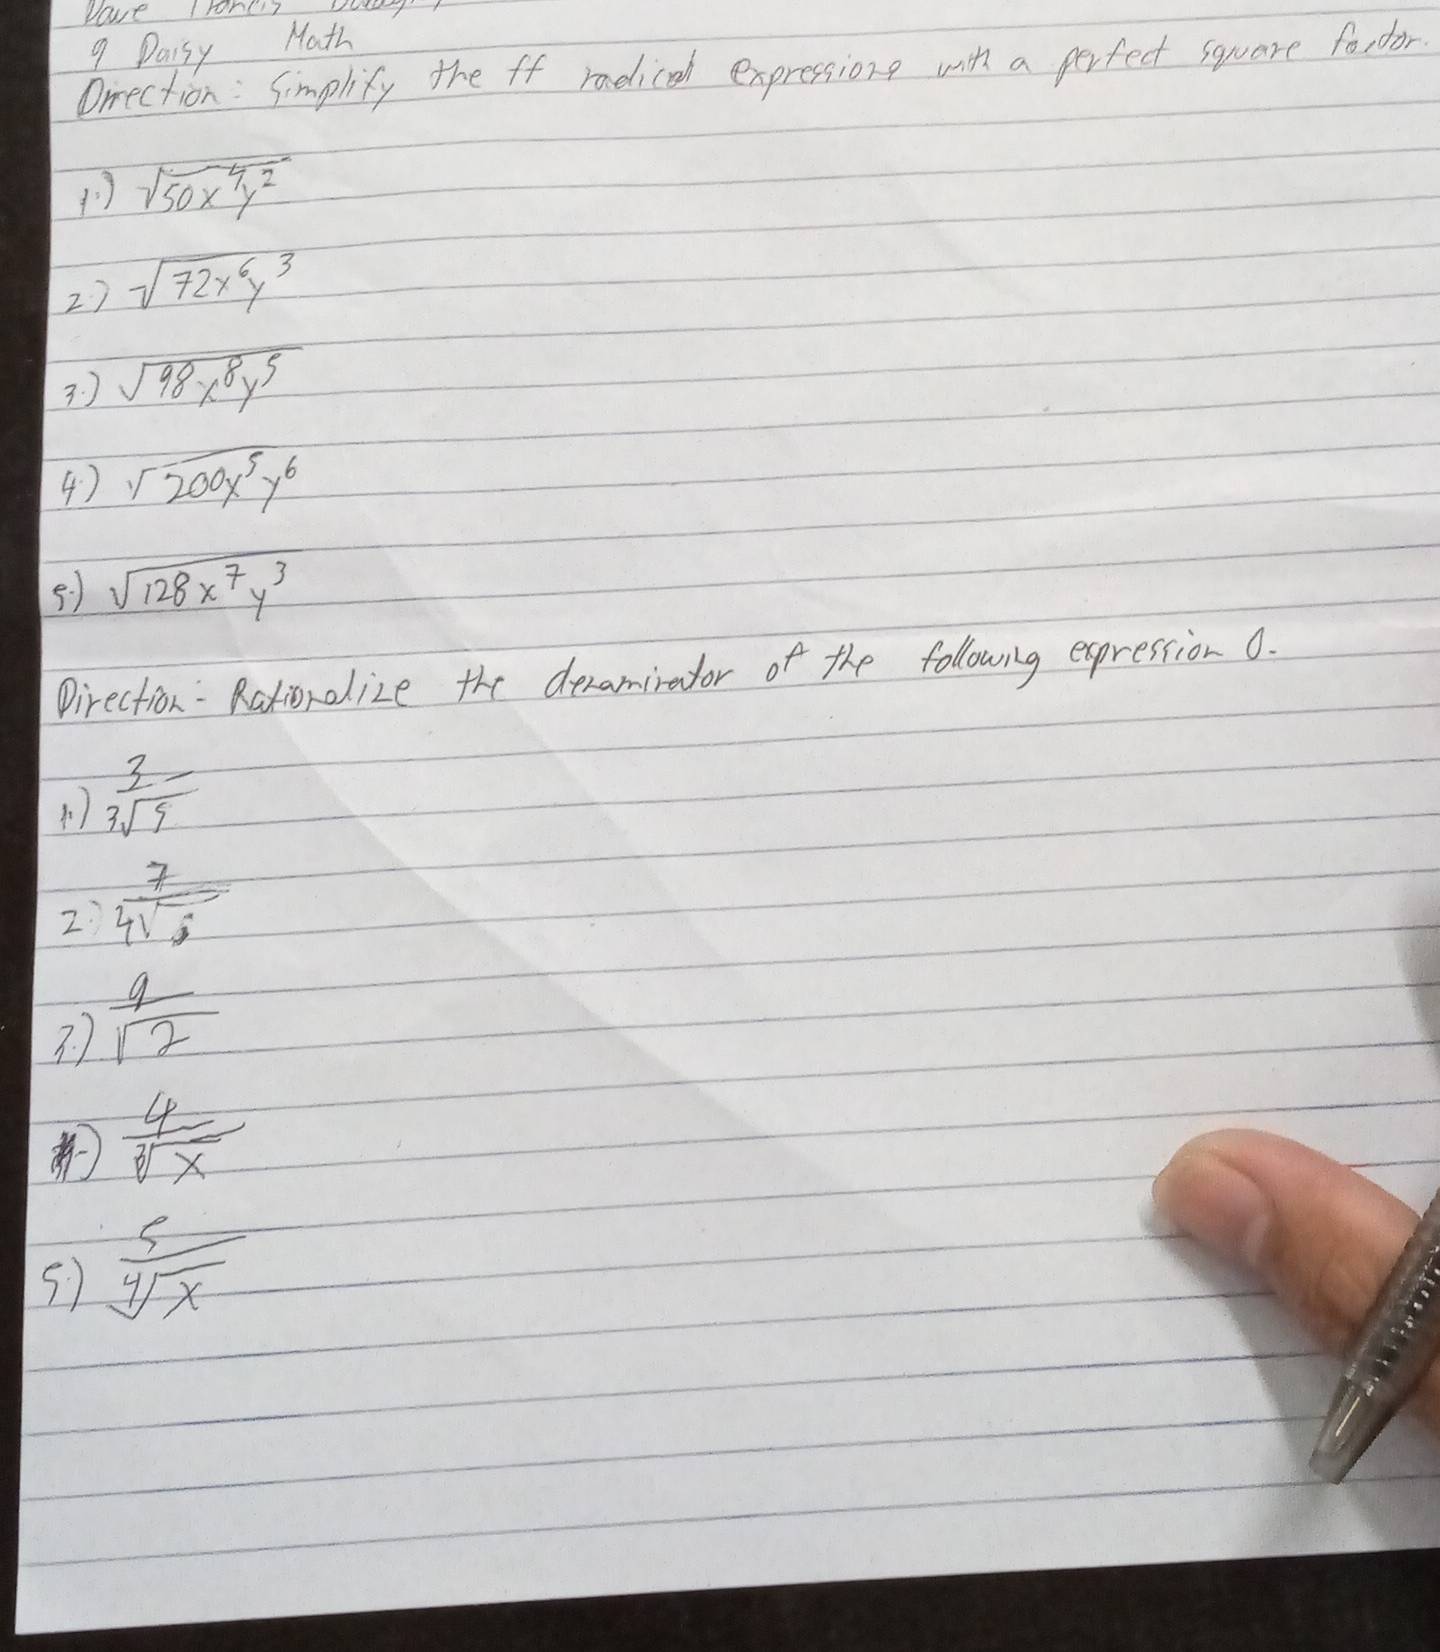 Dave
9 Daisy Math
Direction: Simplify the ff radical expressions with a perfect square factor.
1.) √50x⁴y²
2.) √72x⁶y³
3.) √98x⁸y⁵
4.) √200x⁵y⁶
5.) √128x⁷y³
Direction: Rationalize the denaminator of the following expression 0.
1.) 3/3√5
2.) 7/4√5
3.) 9/√2
4/∛x
5.) 5/∜x